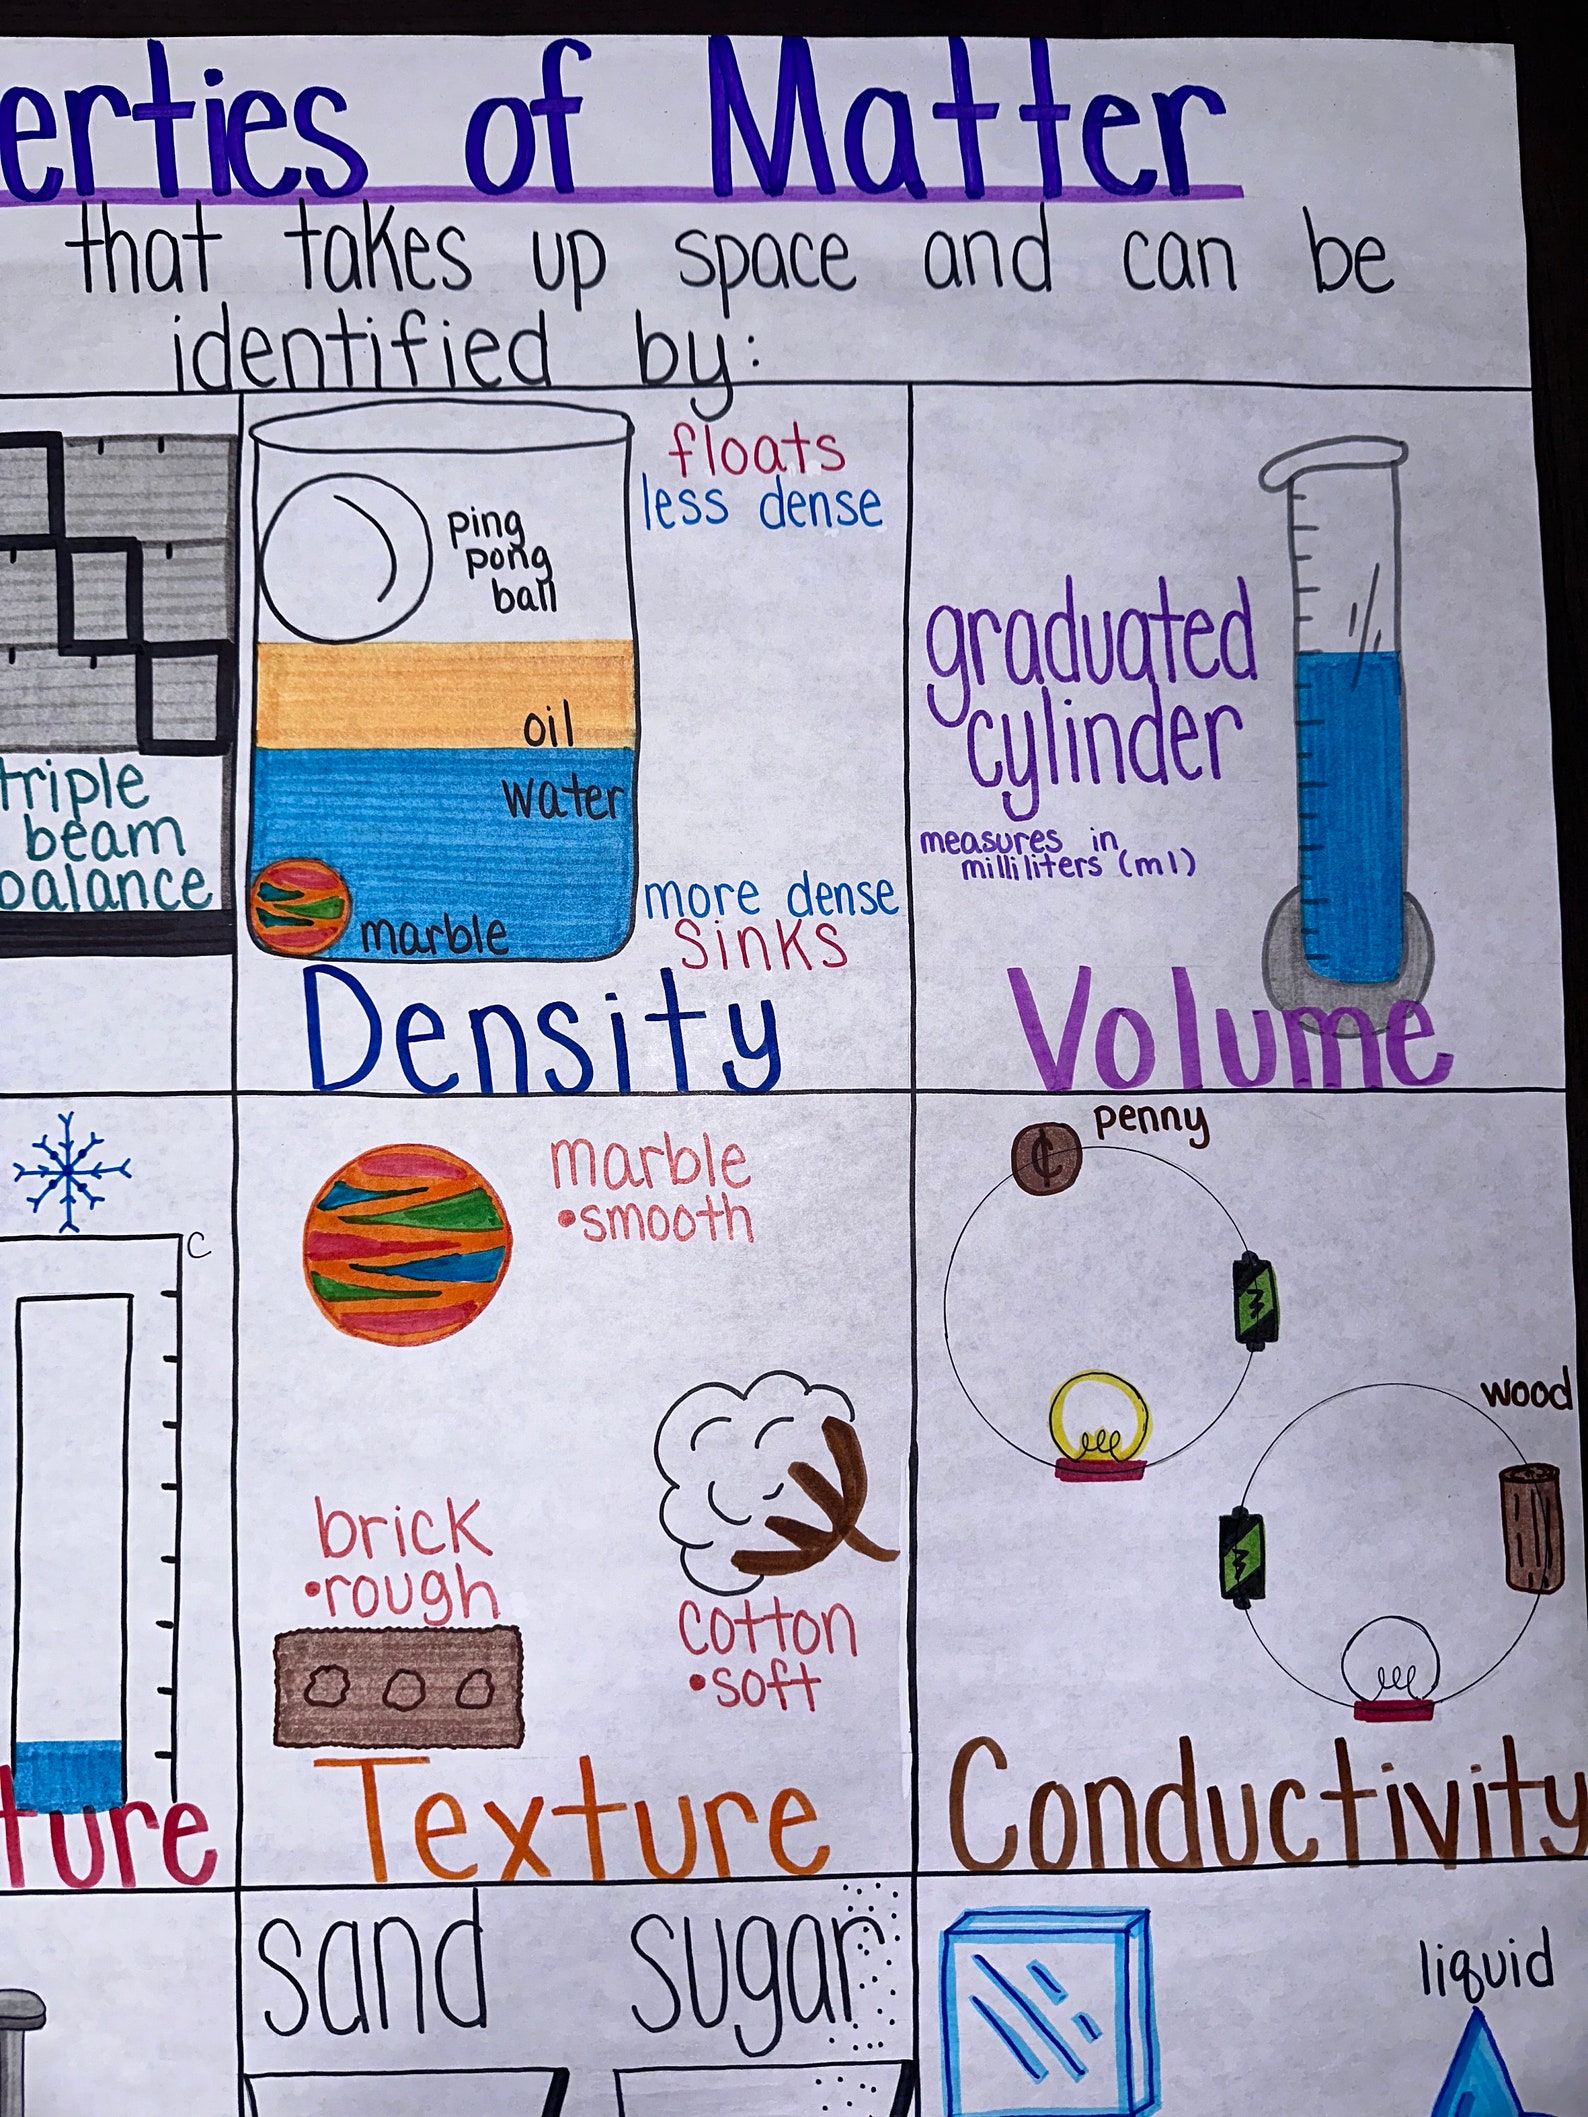 erties of Matter
that takes up space and can be
identified by:
triple
beam
balance
ping
pong
ball
oil
water
marble
floats
less dense
more dense
sinks
Density
graduated
cylinder
measures in
milliliters (ml)
Volume
C
ture
marble
•smooth
brick
•rough
cotton
•soft
Texture
penny
¢
wood
Conductivity
sand sugar
liquid